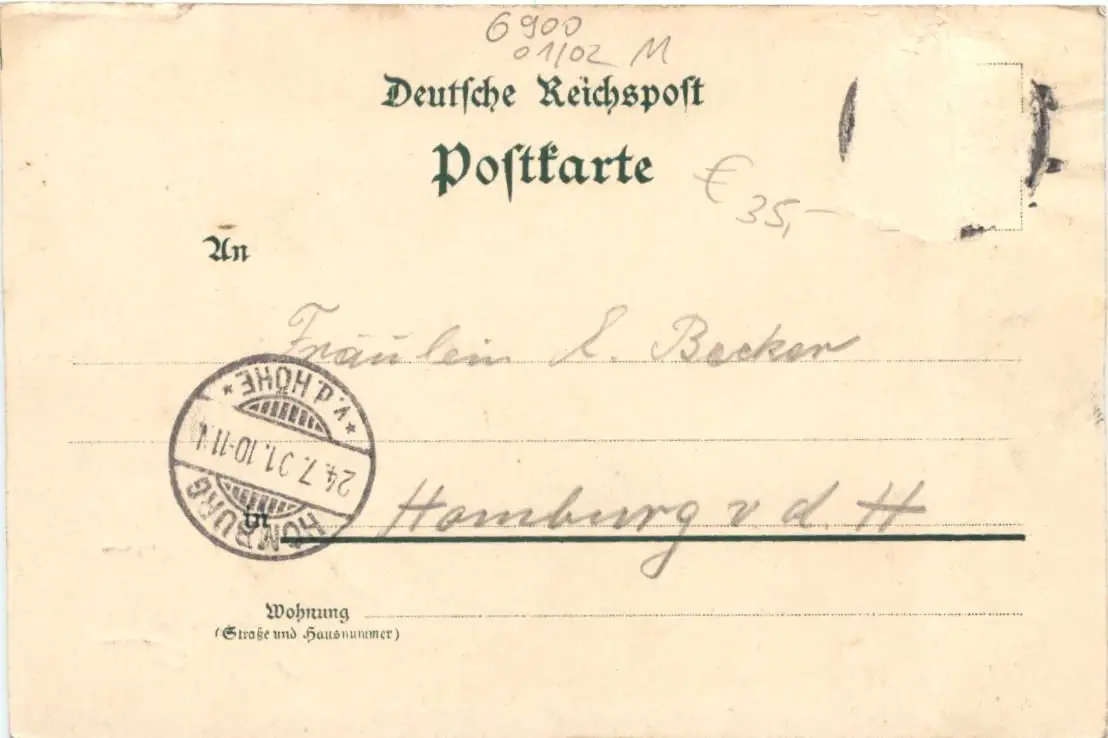 6900
01/02 M
Deutsche Reichspost
Postkarte
€ 35,-
An
Fräulein L. Becker
HOMBURG
v.d. HÖHE
24.7.01.10-11V.
in Homburg v. d. H
Wohnung
(Straße und Hausnummer)